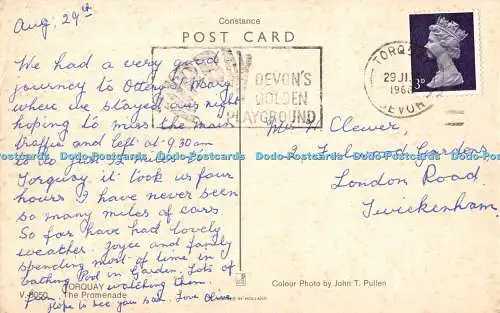 Constance
POST CARD
Aug. 29th
We had a very good
journey to Ottery St Mary
where we stayed over night
hoping to miss the main
traffic and left at 9.30 am
to do just 32 miles to
Torquay. it took us four
hours I have never seen
so many miles of cars.
So far have had lovely
weather. Joyce and family
spending most of time in
bathing Pool in Garden. Lots of
fun watching them.
Hope to see you soon. Love
TORQUAY
V.6050 The Promenade
DEVON'S
GOLDEN
PLAYGROUND
TORQUAY
29 JL
1968
DEVON
3D
Mrs H Clewer,
9 Gardens
London Road
Twickenham
Colour Photo by John T. Pullen
PRINTED IN HOLLAND
Dodo-Postcards Dodo-Postcards Dodo-Postcards Dodo-Postcards Dodo-Postcards